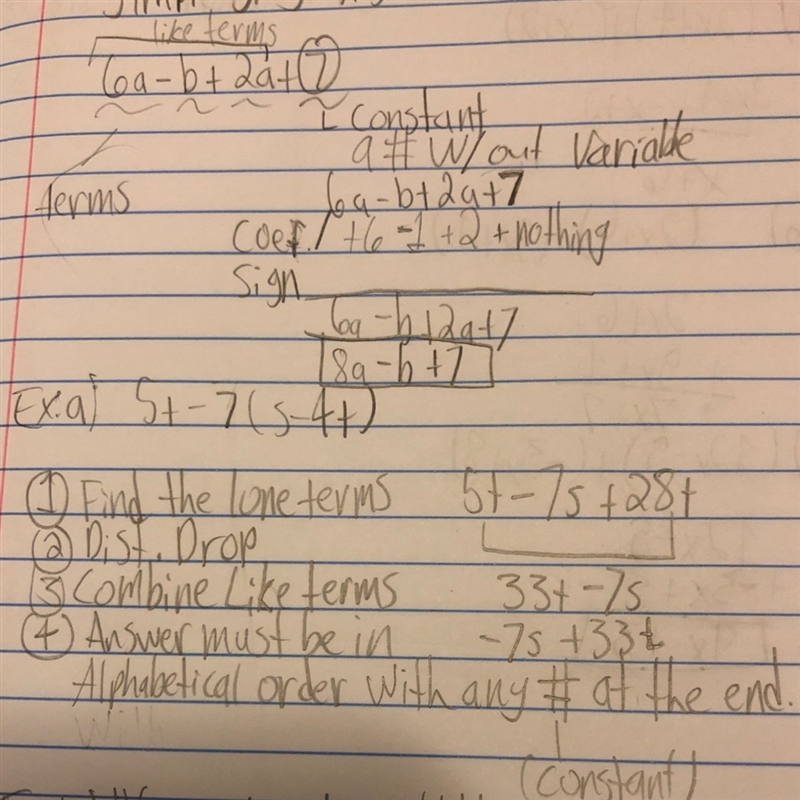 like terms
6a-b+2a+7
Constant
a # w/out Variable
terms
6a-b+2a+7
Coef./ +6 -1 +2 + nothing
Sign
6a-b+2a+7
8a-b+7
Ex.a) 5t-7(s-4t)
① Find the lone terms 5t-7s+28t
② Dist. Drop
③ Combine Like terms 33t-7s
④ Answer must be in -7s+33t
Alphabetical order with any # at the end.
(constant)